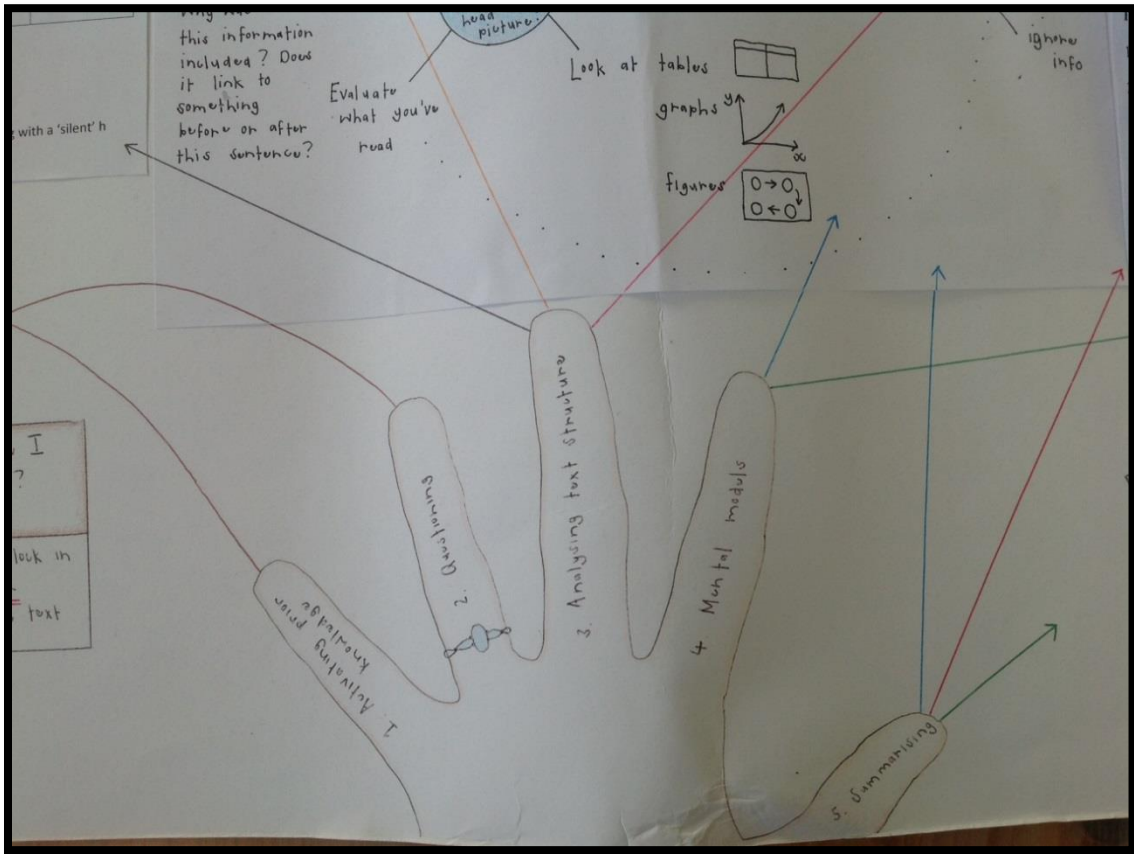 this information
included? Does
it link to
something
before or after
this sentence?
with a 'silent' h
Evaluate
what you've
read
head
picture?
Look at tables
graphs
y
x
figures
ignore
info
I
?
lock in
text
1. Activating prior
knowledge
2. Questioning
3. Analysing text structure
4 Mental models
5. Summarising